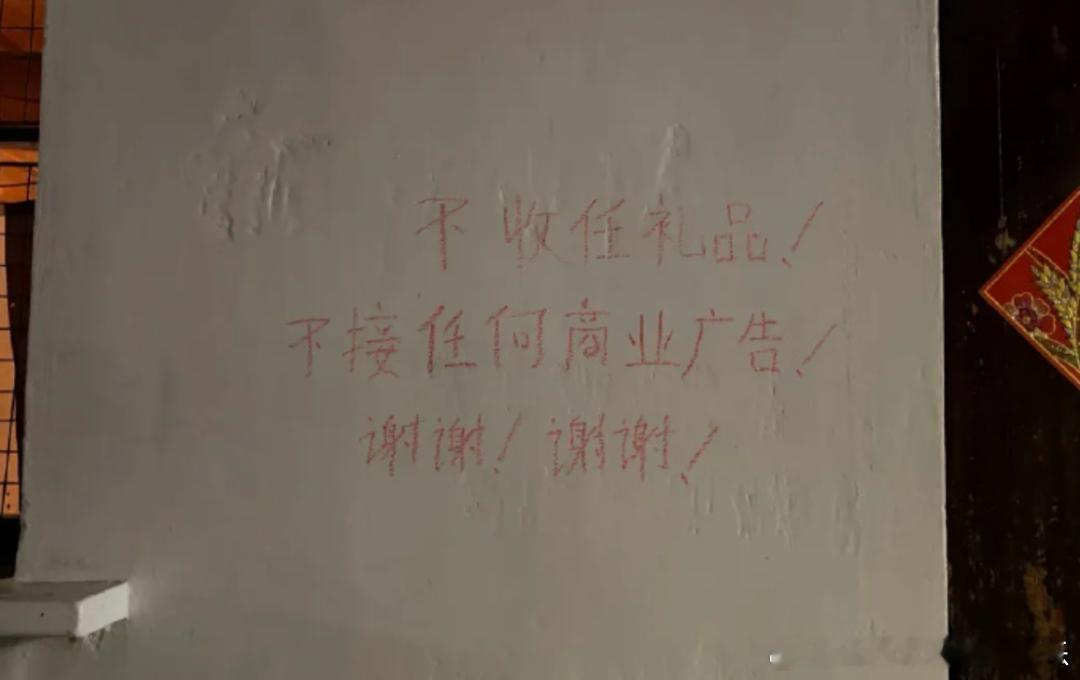 不收任礼品！
不接任何商业广告！
谢谢！谢谢！